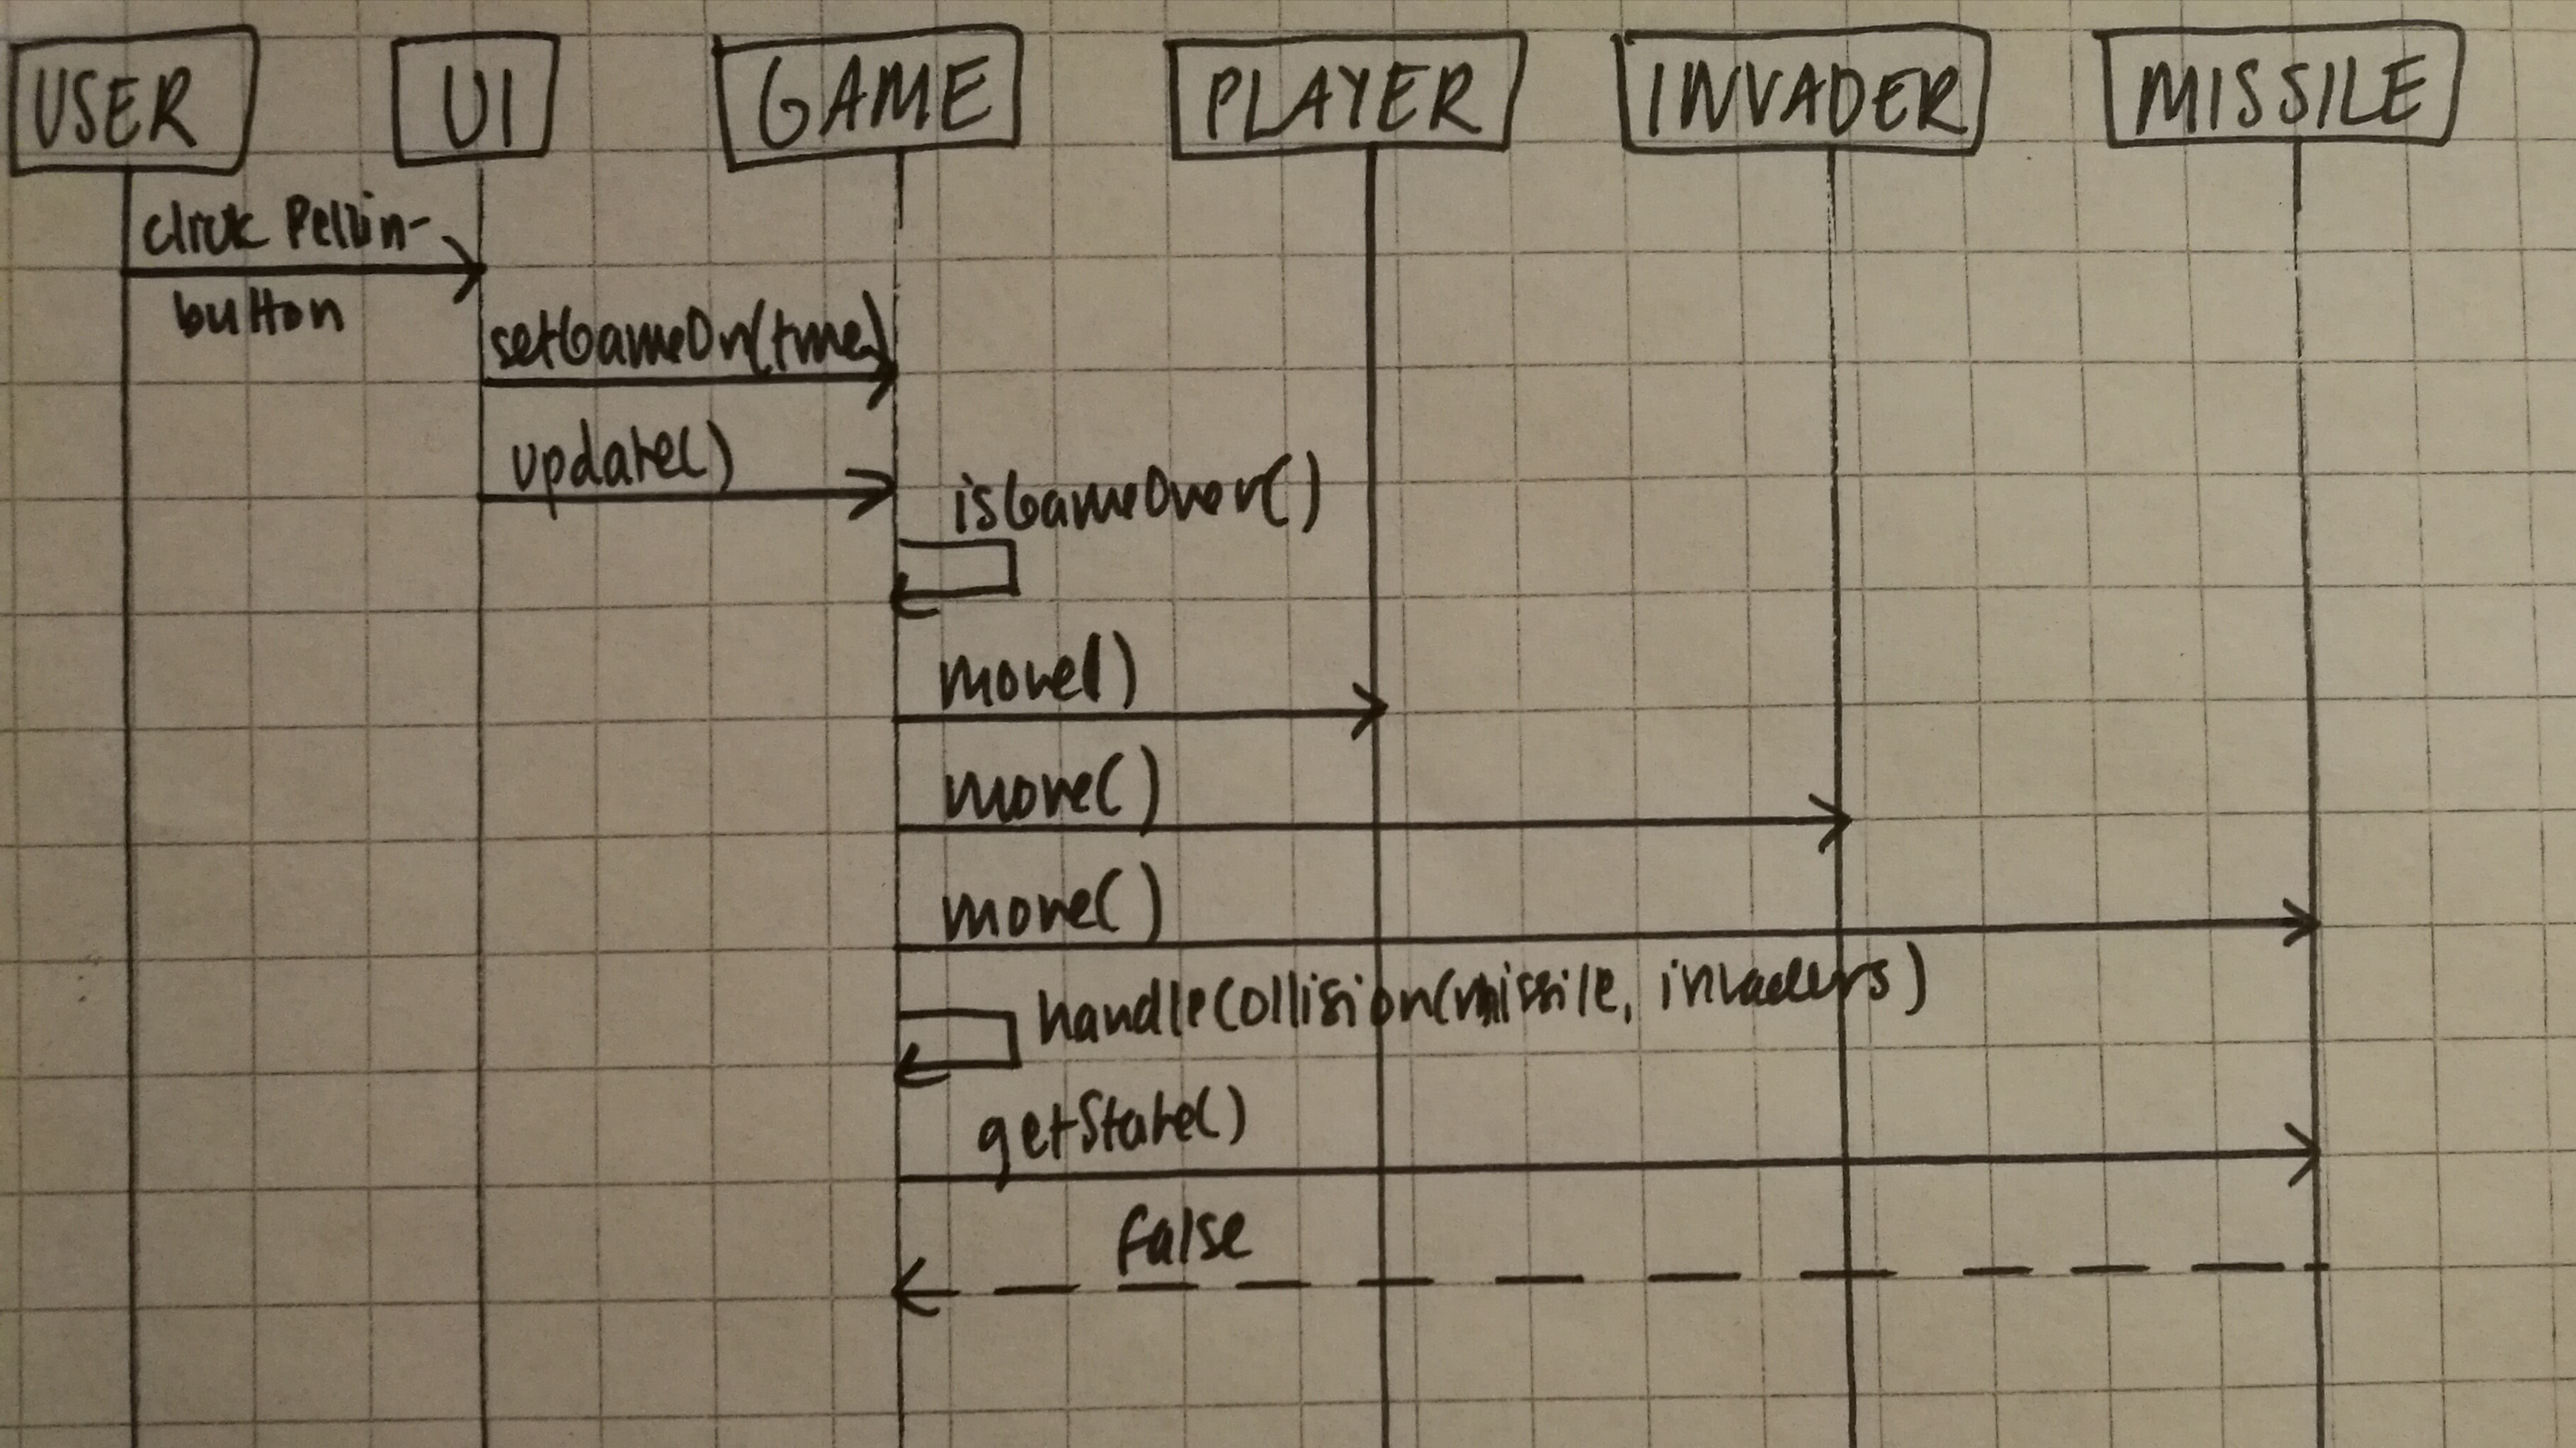 USER
UI
GAME
PLAYER
INVADER
MISSILE
click Peliin-
button
setGameOn(true)
update()
isGameOver()
move()
move()
move()
handleCollision(missile, invaders)
getState()
false